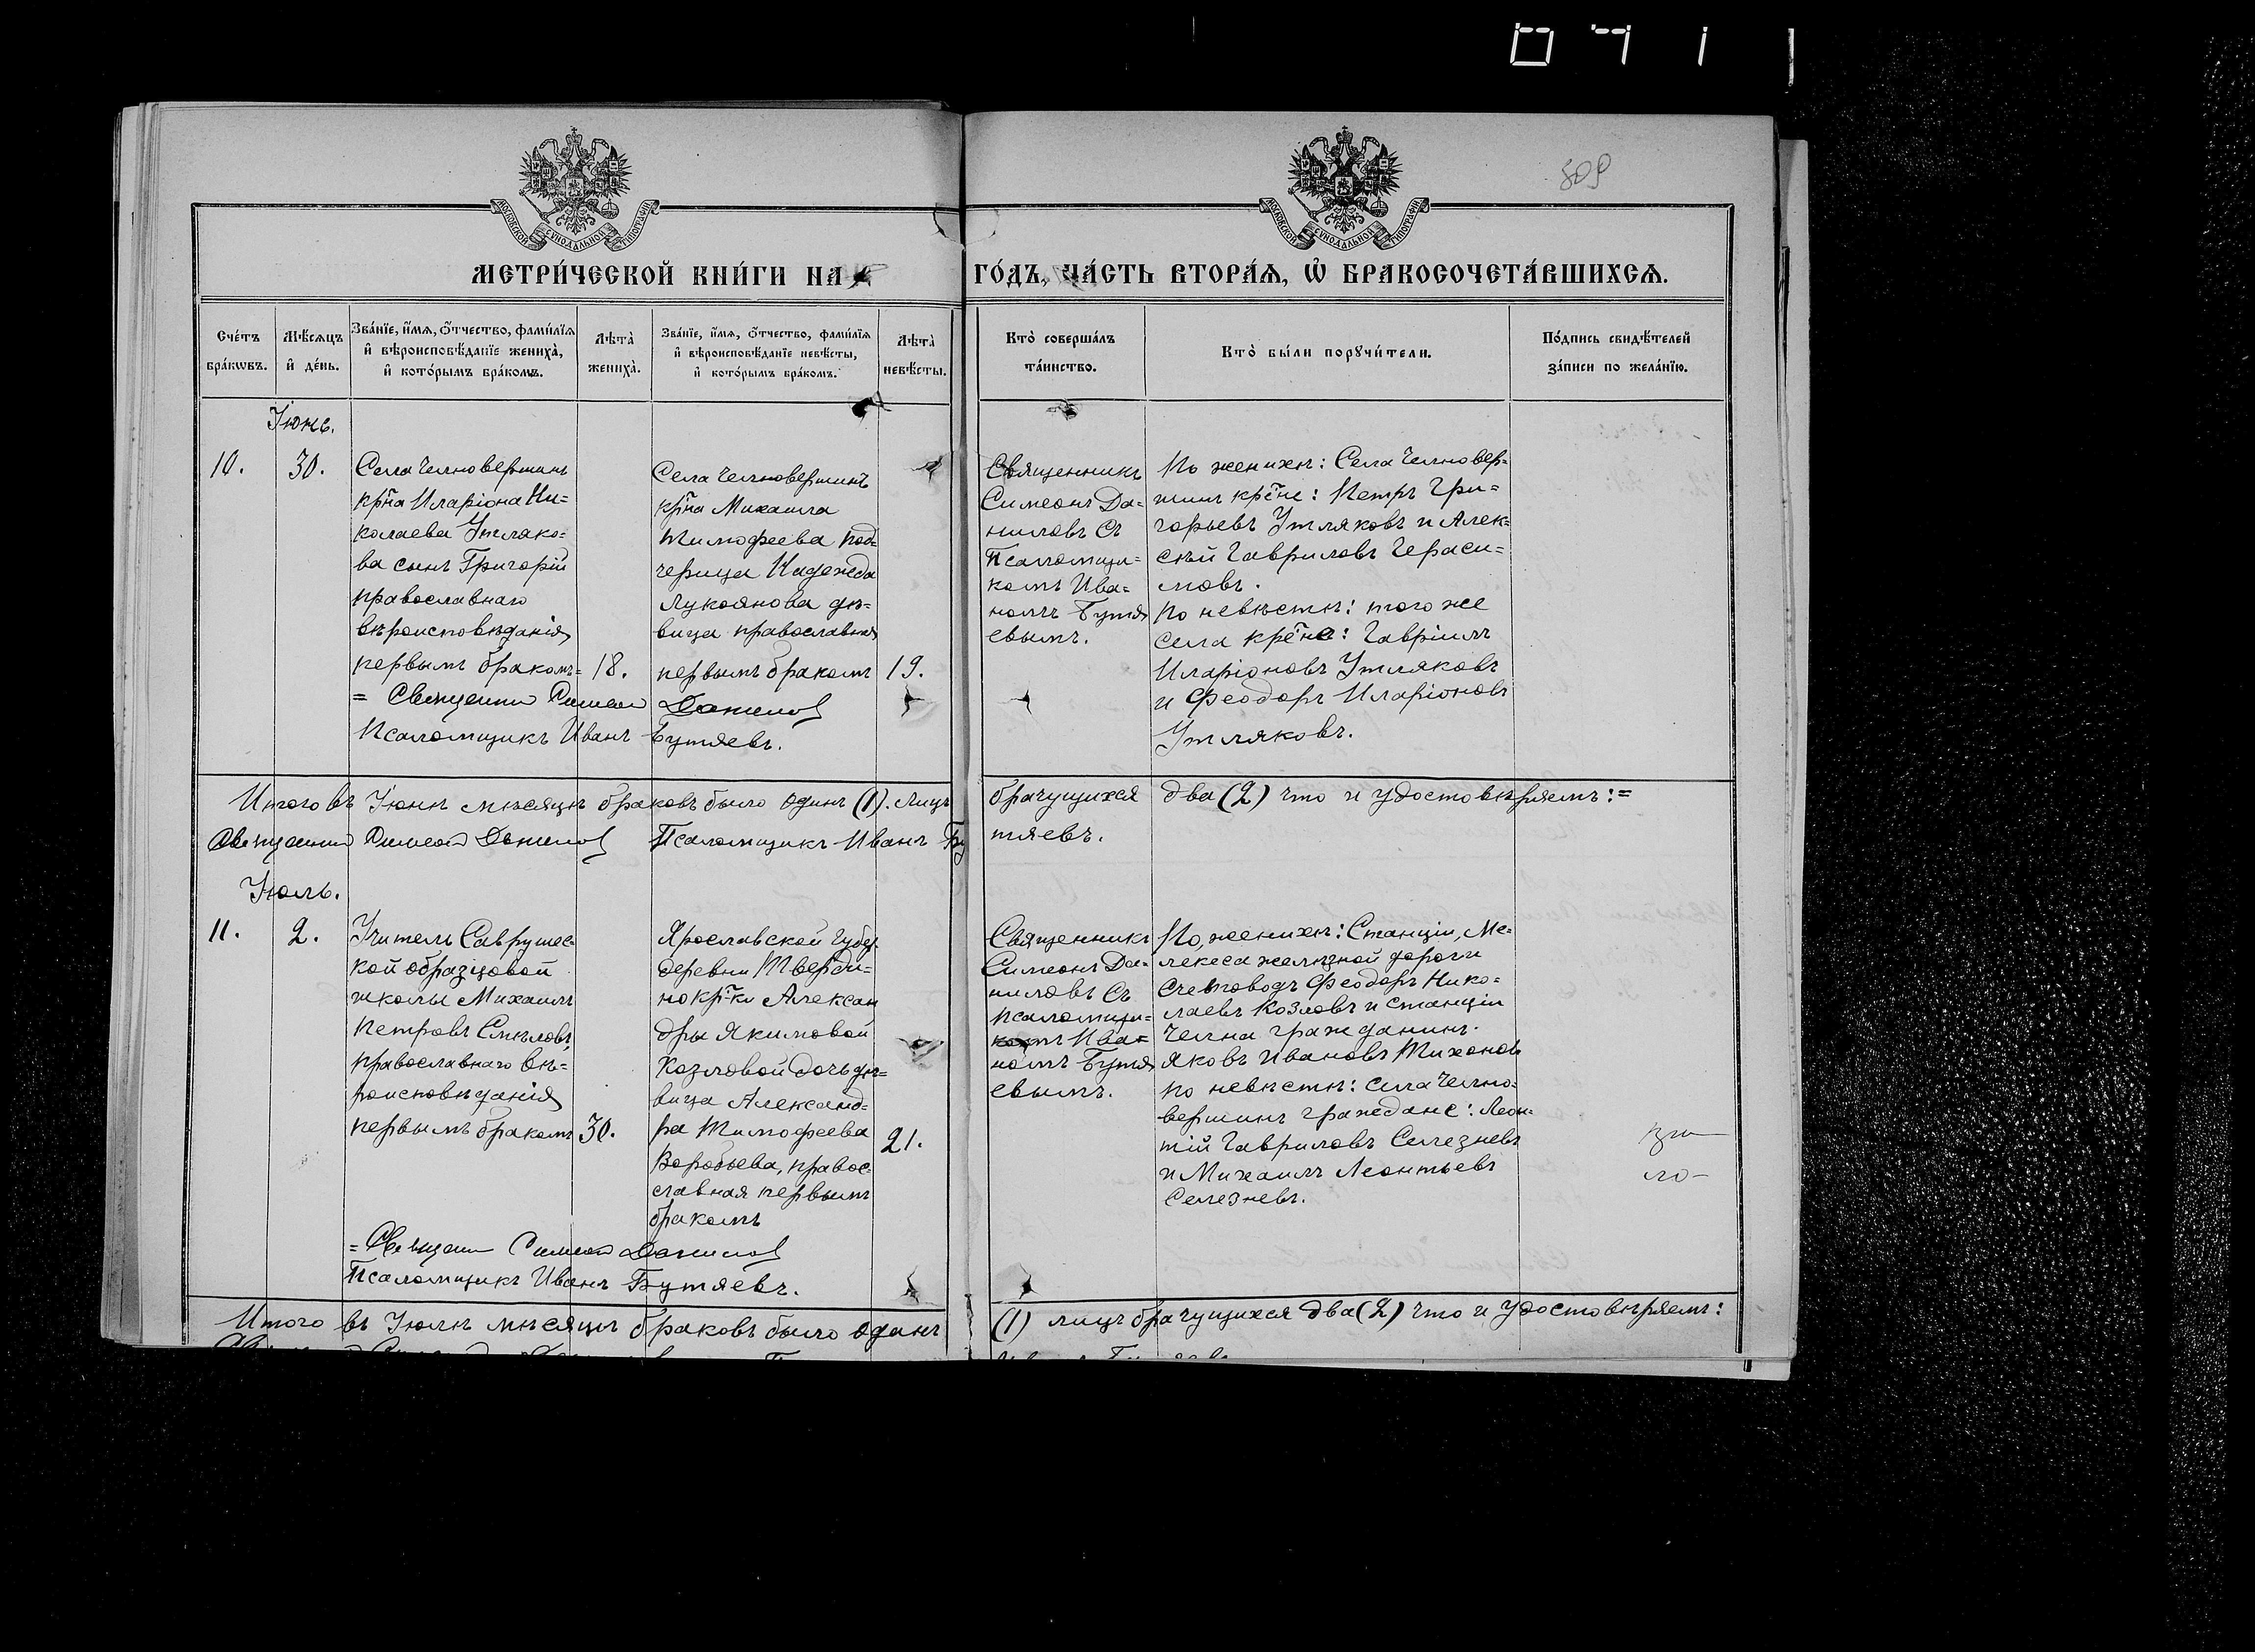 809
МОСКОВСКОЙ СѴНОДАЛЬНОЙ ТИПОГРАФІИ
МОСКОВСКОЙ СѴНОДАЛЬНОЙ ТИПОГРАФІИ
МЕТРИ́ЧЕСКОЙ КНИ́ГИ НА ГО́ДЪ, ЧА́СТЬ ВТОРА́Ѧ, Ѡ҆ БРАКОСОЧЕТА́ВШИХСѦ.
Сче́тъ
бра́кѡвъ.
Мѣ́сѧцъ
и҆ де́нь.
Зва́нїе, и҆́мѧ, ѻ҆́тчество, фами́лїѧ
и҆ вѣроисповѣ́данїе жениха̀,
и҆ кото́рымъ бра́комъ.
Лѣ́та̀
жениха̀.
Зва́нїе, и҆́мѧ, ѻ҆́тчество, фами́лїѧ
и҆ вѣроисповѣ́данїе невѣ́сты,
и҆ кото́рымъ бра́комъ.
Лѣ́та̀
невѣ́сты.
Кто̀ соверша́лъ
та́инство.
Кто̀ бы́ли порꙋчи́тели.
По́дпись свидѣ́телей
за́писи по жела́нїю.
Іюнь.
10.
30.
Села Челновершинъ
крⷭ҇тна Иларіона Ни=
колаева Утляко=
ва сынъ Григорій
православнаго
вѣроисповѣданія,
первымъ бракомъ=
18.
Села Челновершинъ
крⷭ҇тна Михаила
Тимофеева под=
черица Надежда
Лукоянова дѣ=
вица православная
первымъ бракомъ
19.
= Священникъ Симеонъ Даниловъ
Псаломщикъ Иванъ Бутяевъ.
Священникъ
Симеонъ Да=
ниловъ съ
Псаломщи=
комъ Ива=
номъ Бутя
евымъ.
По женихѣ: Села Челновер=
шинъ крⷭ҇тне: Петръ Гри=
горьевъ Утляковъ и Алек=
сѣй Гавриловъ Гераси=
мовъ.
По невѣстѣ: того же
села крⷭ҇тне: Гавріилъ
Иларіоновъ Утляковъ
и Феодоръ Иларіоновъ
Утляковъ.
Итого въ Іюнѣ мѣсяцѣ браковъ было одинъ (1). Лицъ брачущихся два (2) что и удостовѣряемъ:=
Священникъ Симеонъ Даниловъ Псаломщикъ Иванъ Бутяевъ.
Іюль.
11.
2.
Учитель Саврушес=
кой образцовой
школы Михаилъ
Петровъ Смѣловъ,
православнаго вѣ=
роисповѣданія,
первымъ бракомъ
30.
Ярославской Губер.
деревни Тверди=
но крⷭ҇т-ки Алексан
дры Якимовой
Козловой дочь дѣ=
вица Александ=
ра Тимофеева
Воробьева, правос=
славная первымъ
бракомъ
21.
= Священникъ Симеонъ Даниловъ
Псаломщикъ Иванъ Бутяевъ.
Священникъ
Симеонъ Да=
ниловъ съ
псаломщи=
комъ Ива=
номъ Бутя
евымъ.
По, женихѣ: Станціи, Ме=
лекеса желѣзной дороги
Счетоводъ Феодоръ Нико=
лаевъ Козловъ и станціи
Челна гражданинъ.
Яковъ Ивановъ Тихоновъ
По невѣстѣ: села Челно=
вершинъ граждане: Леон=
тій Гавриловъ Селезневъ
и Михаилъ Леонтьевъ
Селезневъ.
Итого въ Іюлѣ мѣсяцѣ браковъ было одинъ (1) лицъ брачущихся два (2) что и удостовѣряемъ: